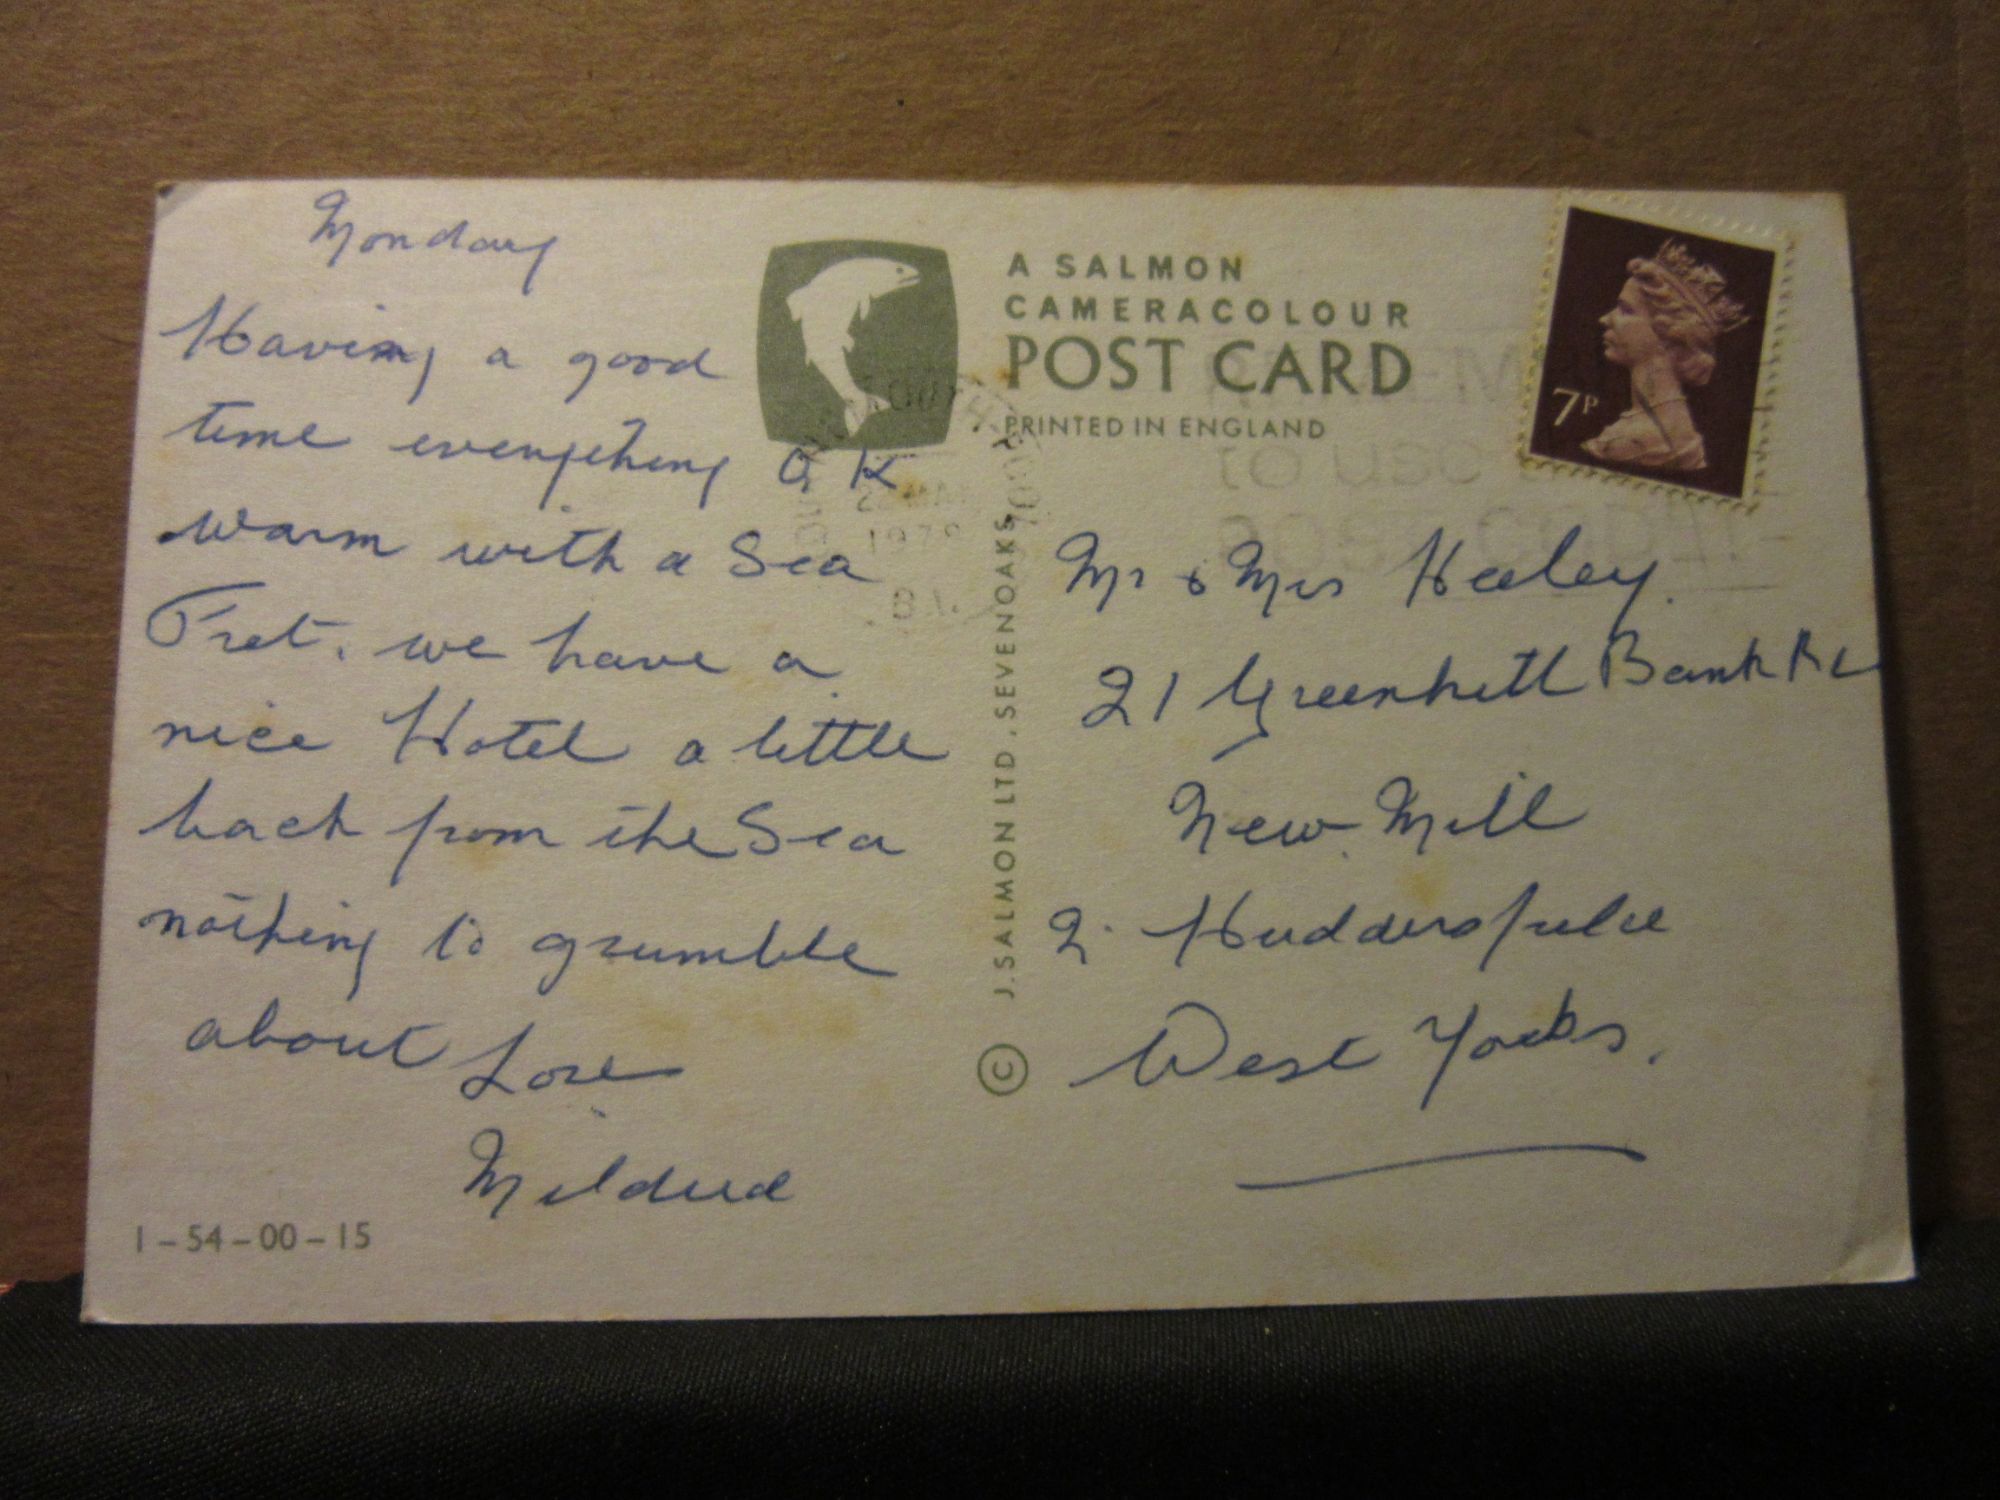 Monday
Having a good
time everything O K
warm with a Sea
Fret. we have a
nice Hotel a little
back from the Sea
nothing to grumble
about Love
Mildred
1-54-00-15
A SALMON
CAMERACOLOUR
POST CARD
PRINTED IN ENGLAND
© J. SALMON LTD, SEVENOAKS
7P
1979
to use
Mr & Mrs Heeley.
21 Greenhill Bank Rd
New Mill
Huddersfield
West Yorks.